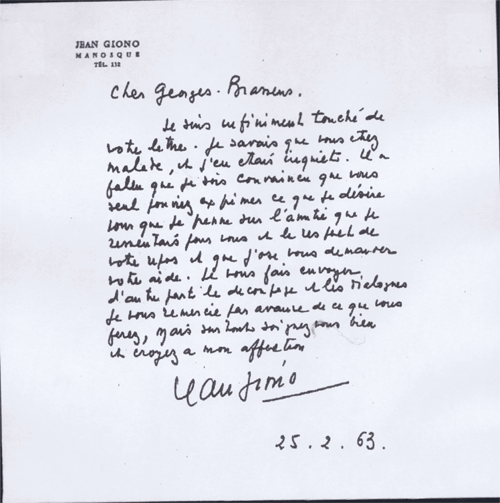 JEAN GIONO
MANOSQUE
TÉL. 132
Cher Georges Brassens.
Je suis infiniment touché de
votre lettre. Je savais que vous étiez
malade, et j'en étais inquiet. Il a
fallu que je sois convaincu que vous
seul pouviez exprimer ce que je désire
pour que je passe sur l'amitié que je
ressentais pour vous et le respect de
votre repos et que j'ose vous demander
votre aide. Je vous fais envoyer
d'autre part le decoupage et les dialogues
Je vous remercie par avance de ce que vous
ferez, mais surtout soignez vous bien
et croyez a mon affection
Jean Giono
25.2.63.